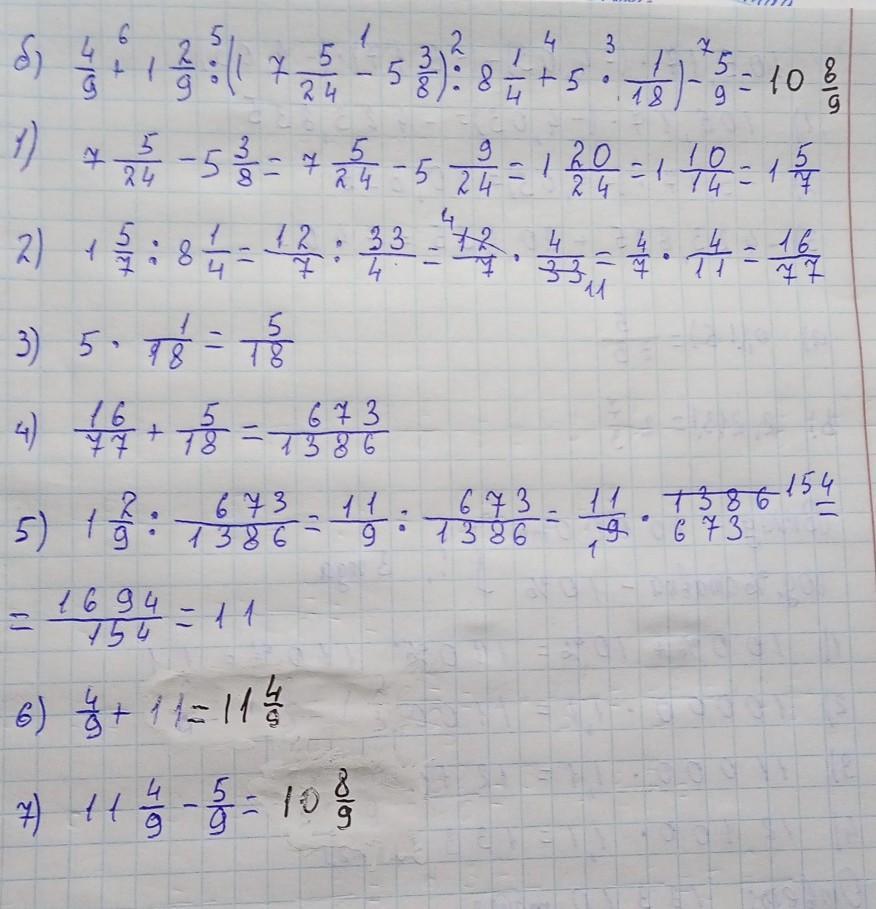 б) 4/9 + 1 2/9 : ((7 5/24 - 5 3/8) : 8 1/4 + 5 · 1/18) - 5/9 = 10 8/9
1) 7 5/24 - 5 3/8 = 7 5/24 - 5 9/24 = 1 20/24 = 1 10/14 = 1 5/7
2) 1 5/7 : 8 1/4 = 12/7 : 33/4 = 12/7 · 4/33 = 4/7 · 4/11 = 16/77
3) 5 · 1/18 = 5/18
4) 16/77 + 5/18 = 673/1386
5) 1 2/9 : 673/1386 = 11/9 : 673/1386 = 11/9 · 1386/673 =
= 1694/154 = 11
6) 4/9 + 11 = 11 4/9
7) 11 4/9 - 5/9 = 10 8/9